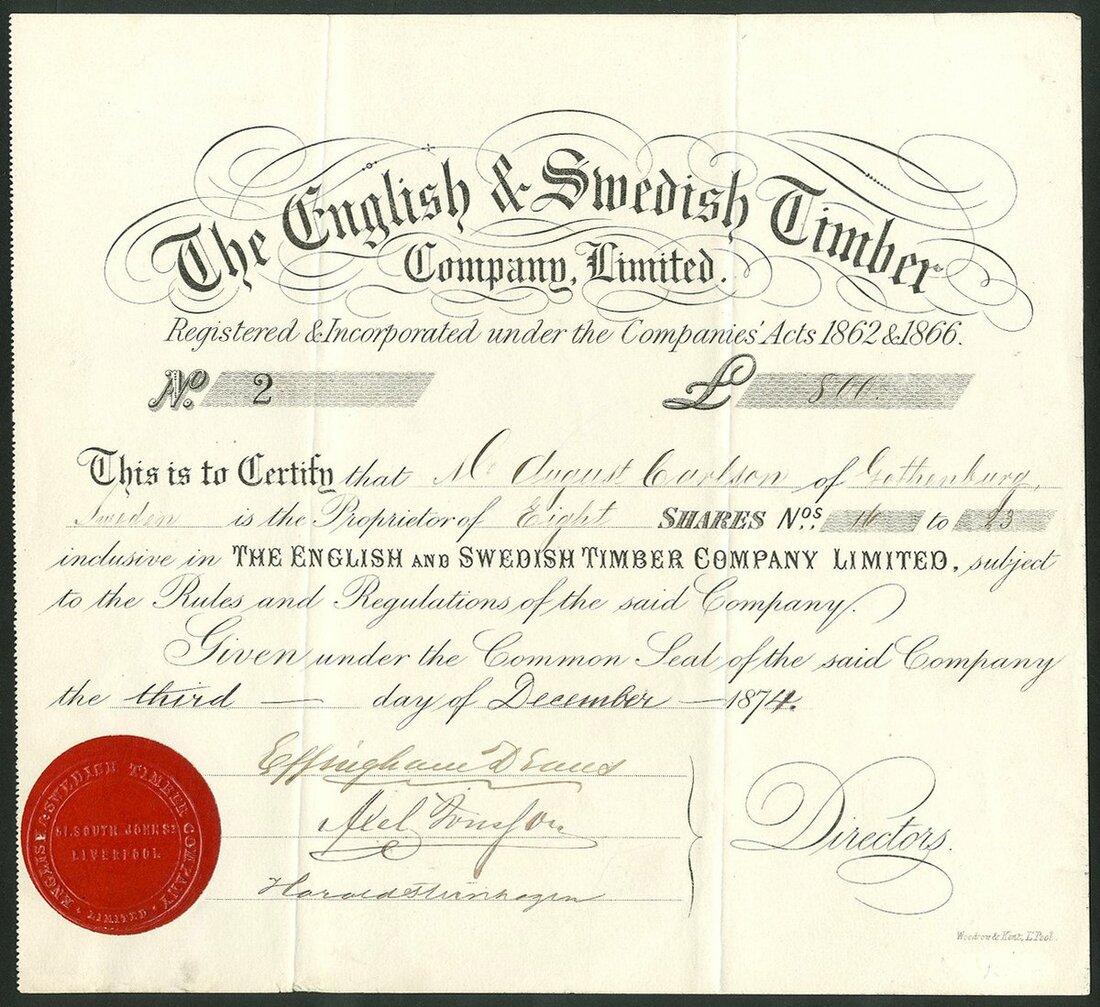 The English & Swedish Timber
Company, Limited.
Registered & Incorporated under the Companies' Acts 1862 & 1866.
No. 2 £ 800.
This is to Certify that Mr August Carlson of Gothenburg,
Sweden is the Proprietor of Eight SHARES Nos. 16 to 23
inclusive in THE ENGLISH AND SWEDISH TIMBER COMPANY LIMITED, subject
to the Rules and Regulations of the said Company.
Given under the Common Seal of the said Company
the third day of December 1874.
Effingham D Evans
Axel
Harald
Directors.
ENGLISH & SWEDISH TIMBER COMPANY
LIMITED
51. SOUTH JOHN ST
LIVERPOOL
Woodrow & Kent, L'Pool.